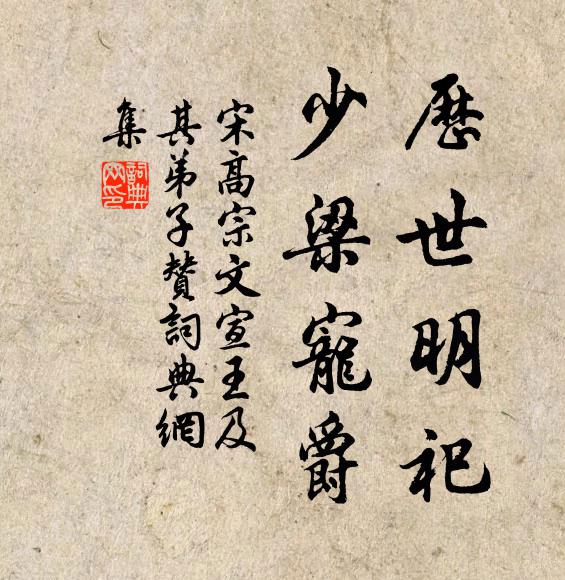 歷世明祀
少梁寵爵
宋高宗文宣王及
其弟子贊詞典網
集
詞典
网印